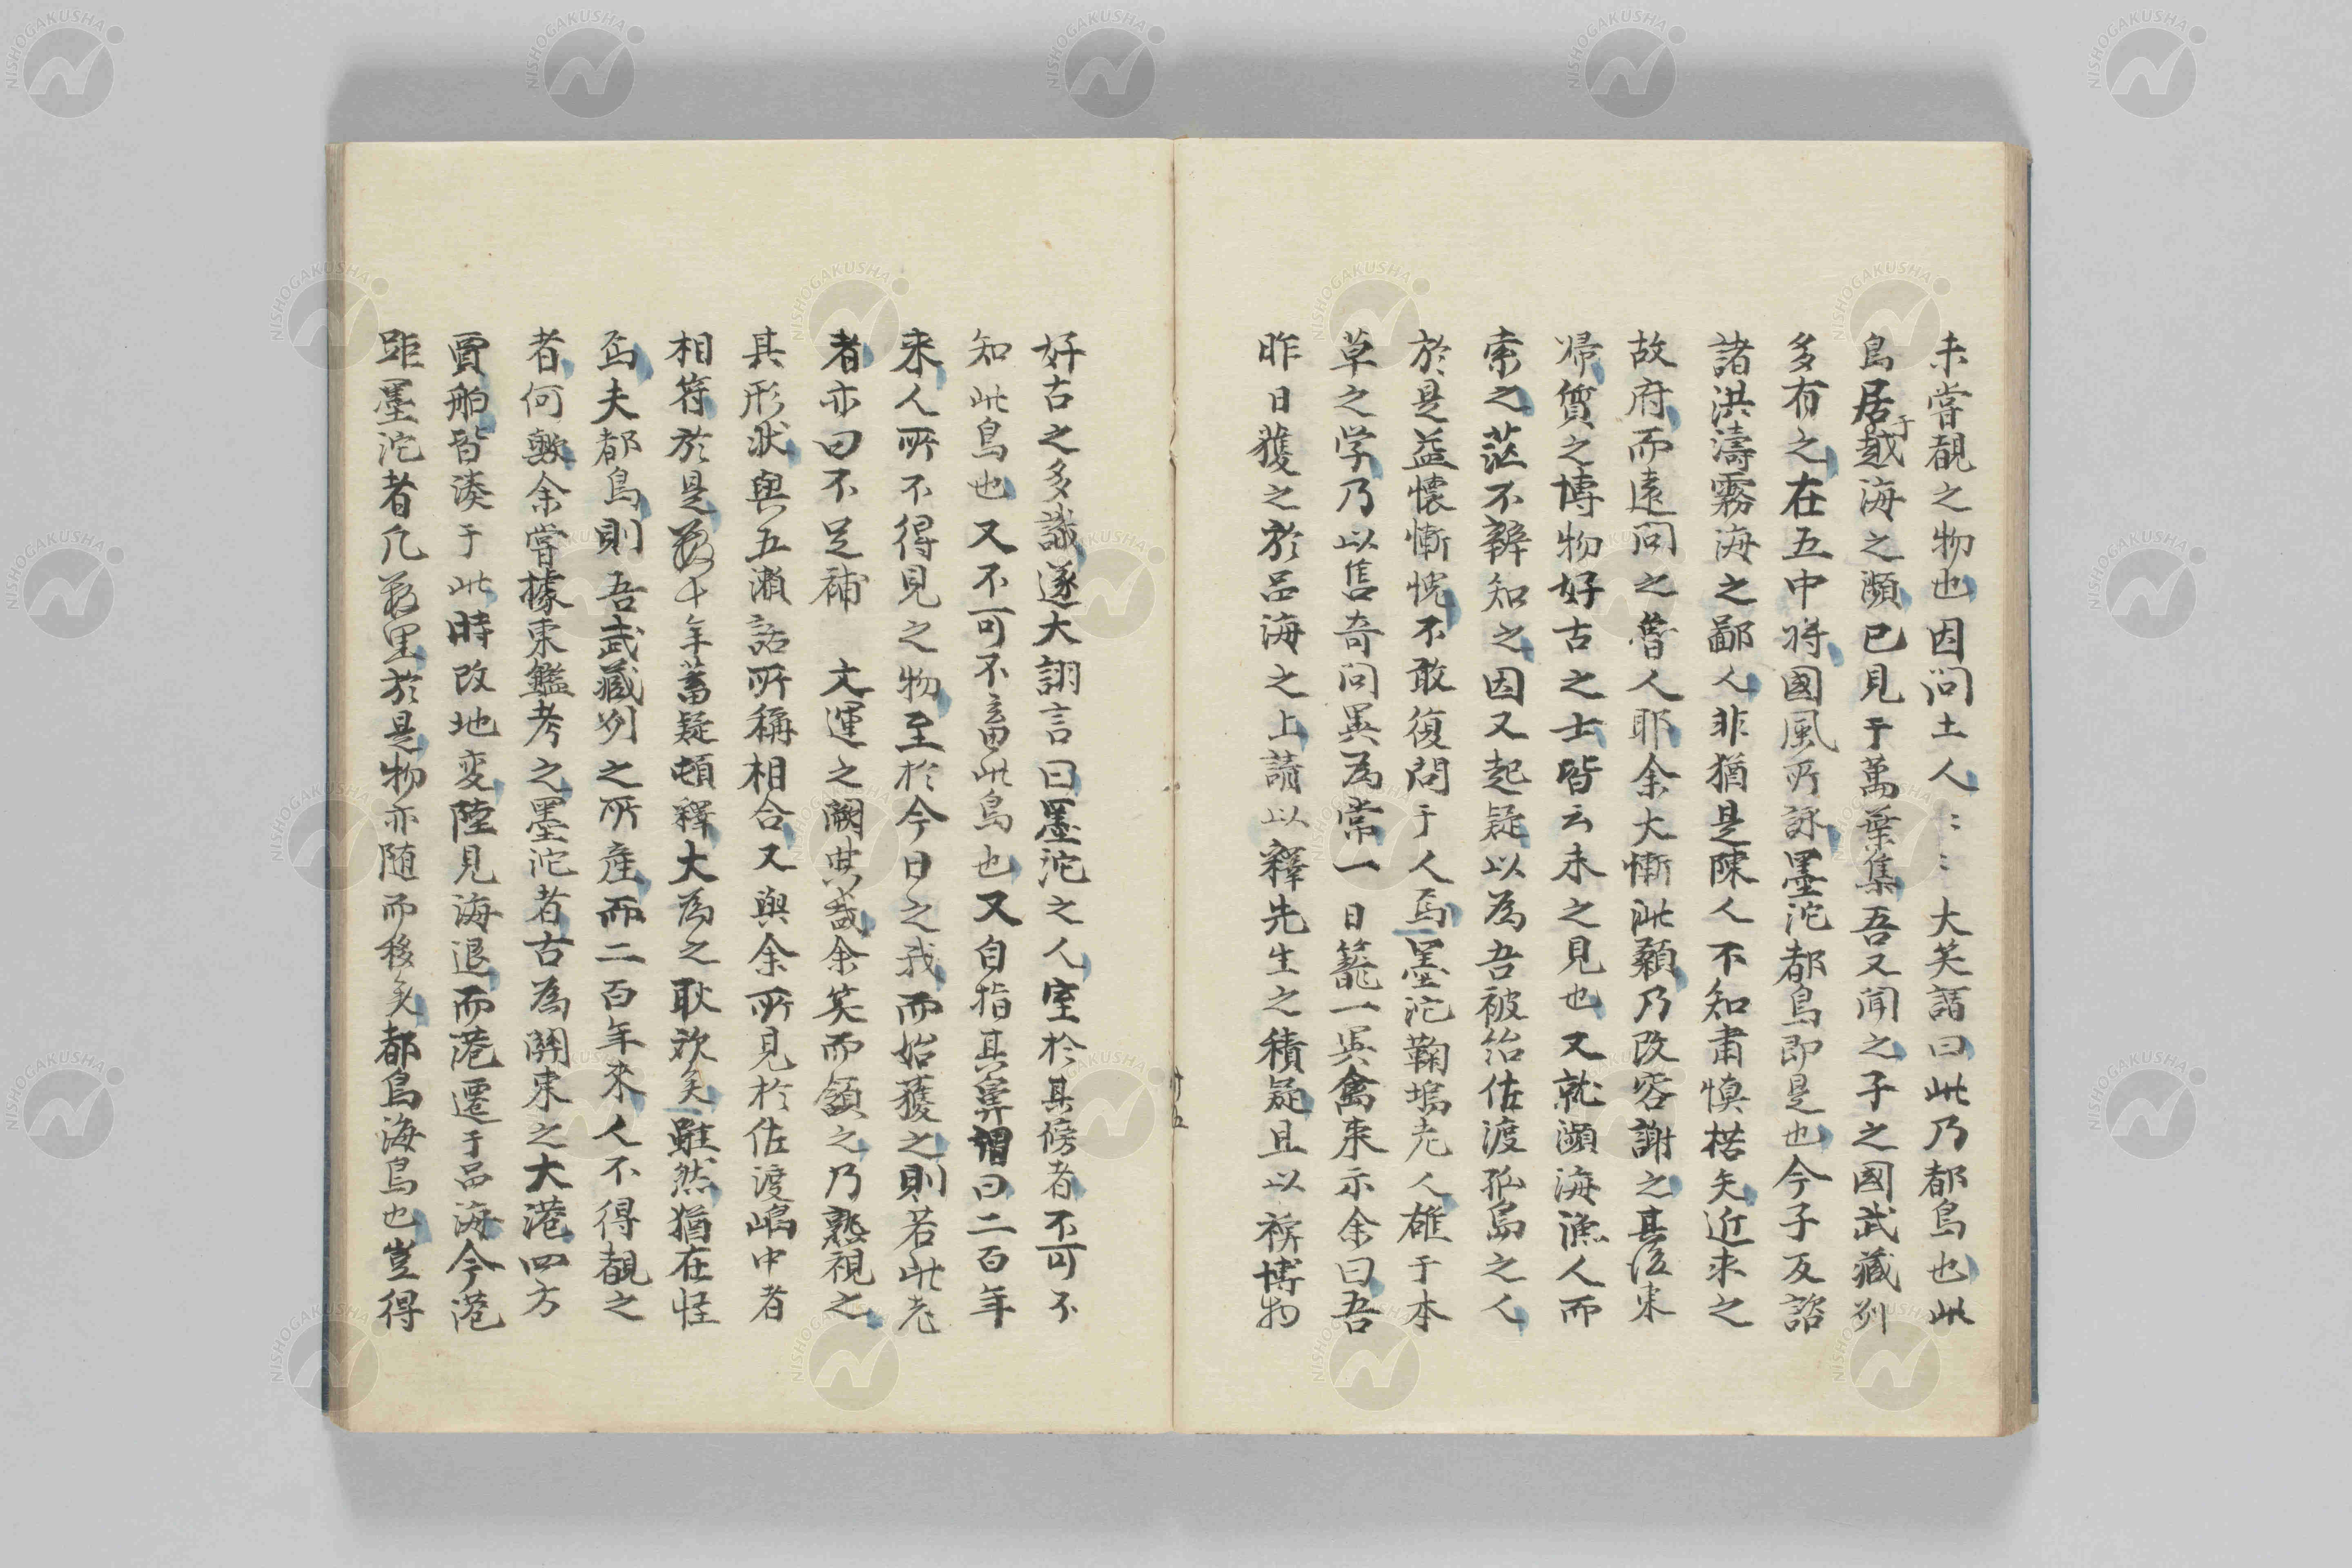 未嘗覩之物也因問土人〻〻大笑語曰此乃都鳥也此
鳥居于越海之瀕已見于萬葉集吾又聞之子之國武藏列
多有之在五中將國風所詠墨沱都鳥即是也今子反諮
諸洪濤霧海之鄙人非猶是陳人不知肅慎楛矢近求之
故府而遠問之魯人耶余大慚此顙乃改容謝之其後東
歸質之博物好古之士皆云未之見也又就瀕海漁人而
索之茫不辨知之因又起疑以為吾被紿佐渡孤島之人
於是益懷慚愧不敢復問于人焉墨沱鞠塢老人雄于本
草之学乃以售奇問異為常一日籠一異禽来示余曰吾
昨日獲之於品海之上請以釋先生之積疑且以裨博物
好古之多識遂大詡言曰墨沱之人室於其傍者不可不
知此鳥也又不可不畜此鳥也又自指其鼻謂曰二百年
来人所不得見之物至於今日之我而始獲之則若此老
者亦曰不足補 文運之闕典哉余笑而頷之乃熟視之
其形狀與五瀬話所稱相合又與余所見於佐渡嶋中者
相符於是數十年蓄疑頓釋大為之耿欣矣雖然猶在怪
焉夫都鳥則吾武藏列之所産而二百年來人不得覩之
者何歟余嘗據東鑑考之墨沱者古為關東之大港四方
賈舶皆湊于此時改地変陸見海退而港遷于品海今港
距墨沱者凡數里於是物亦随而移矣都鳥海鳥也豈得